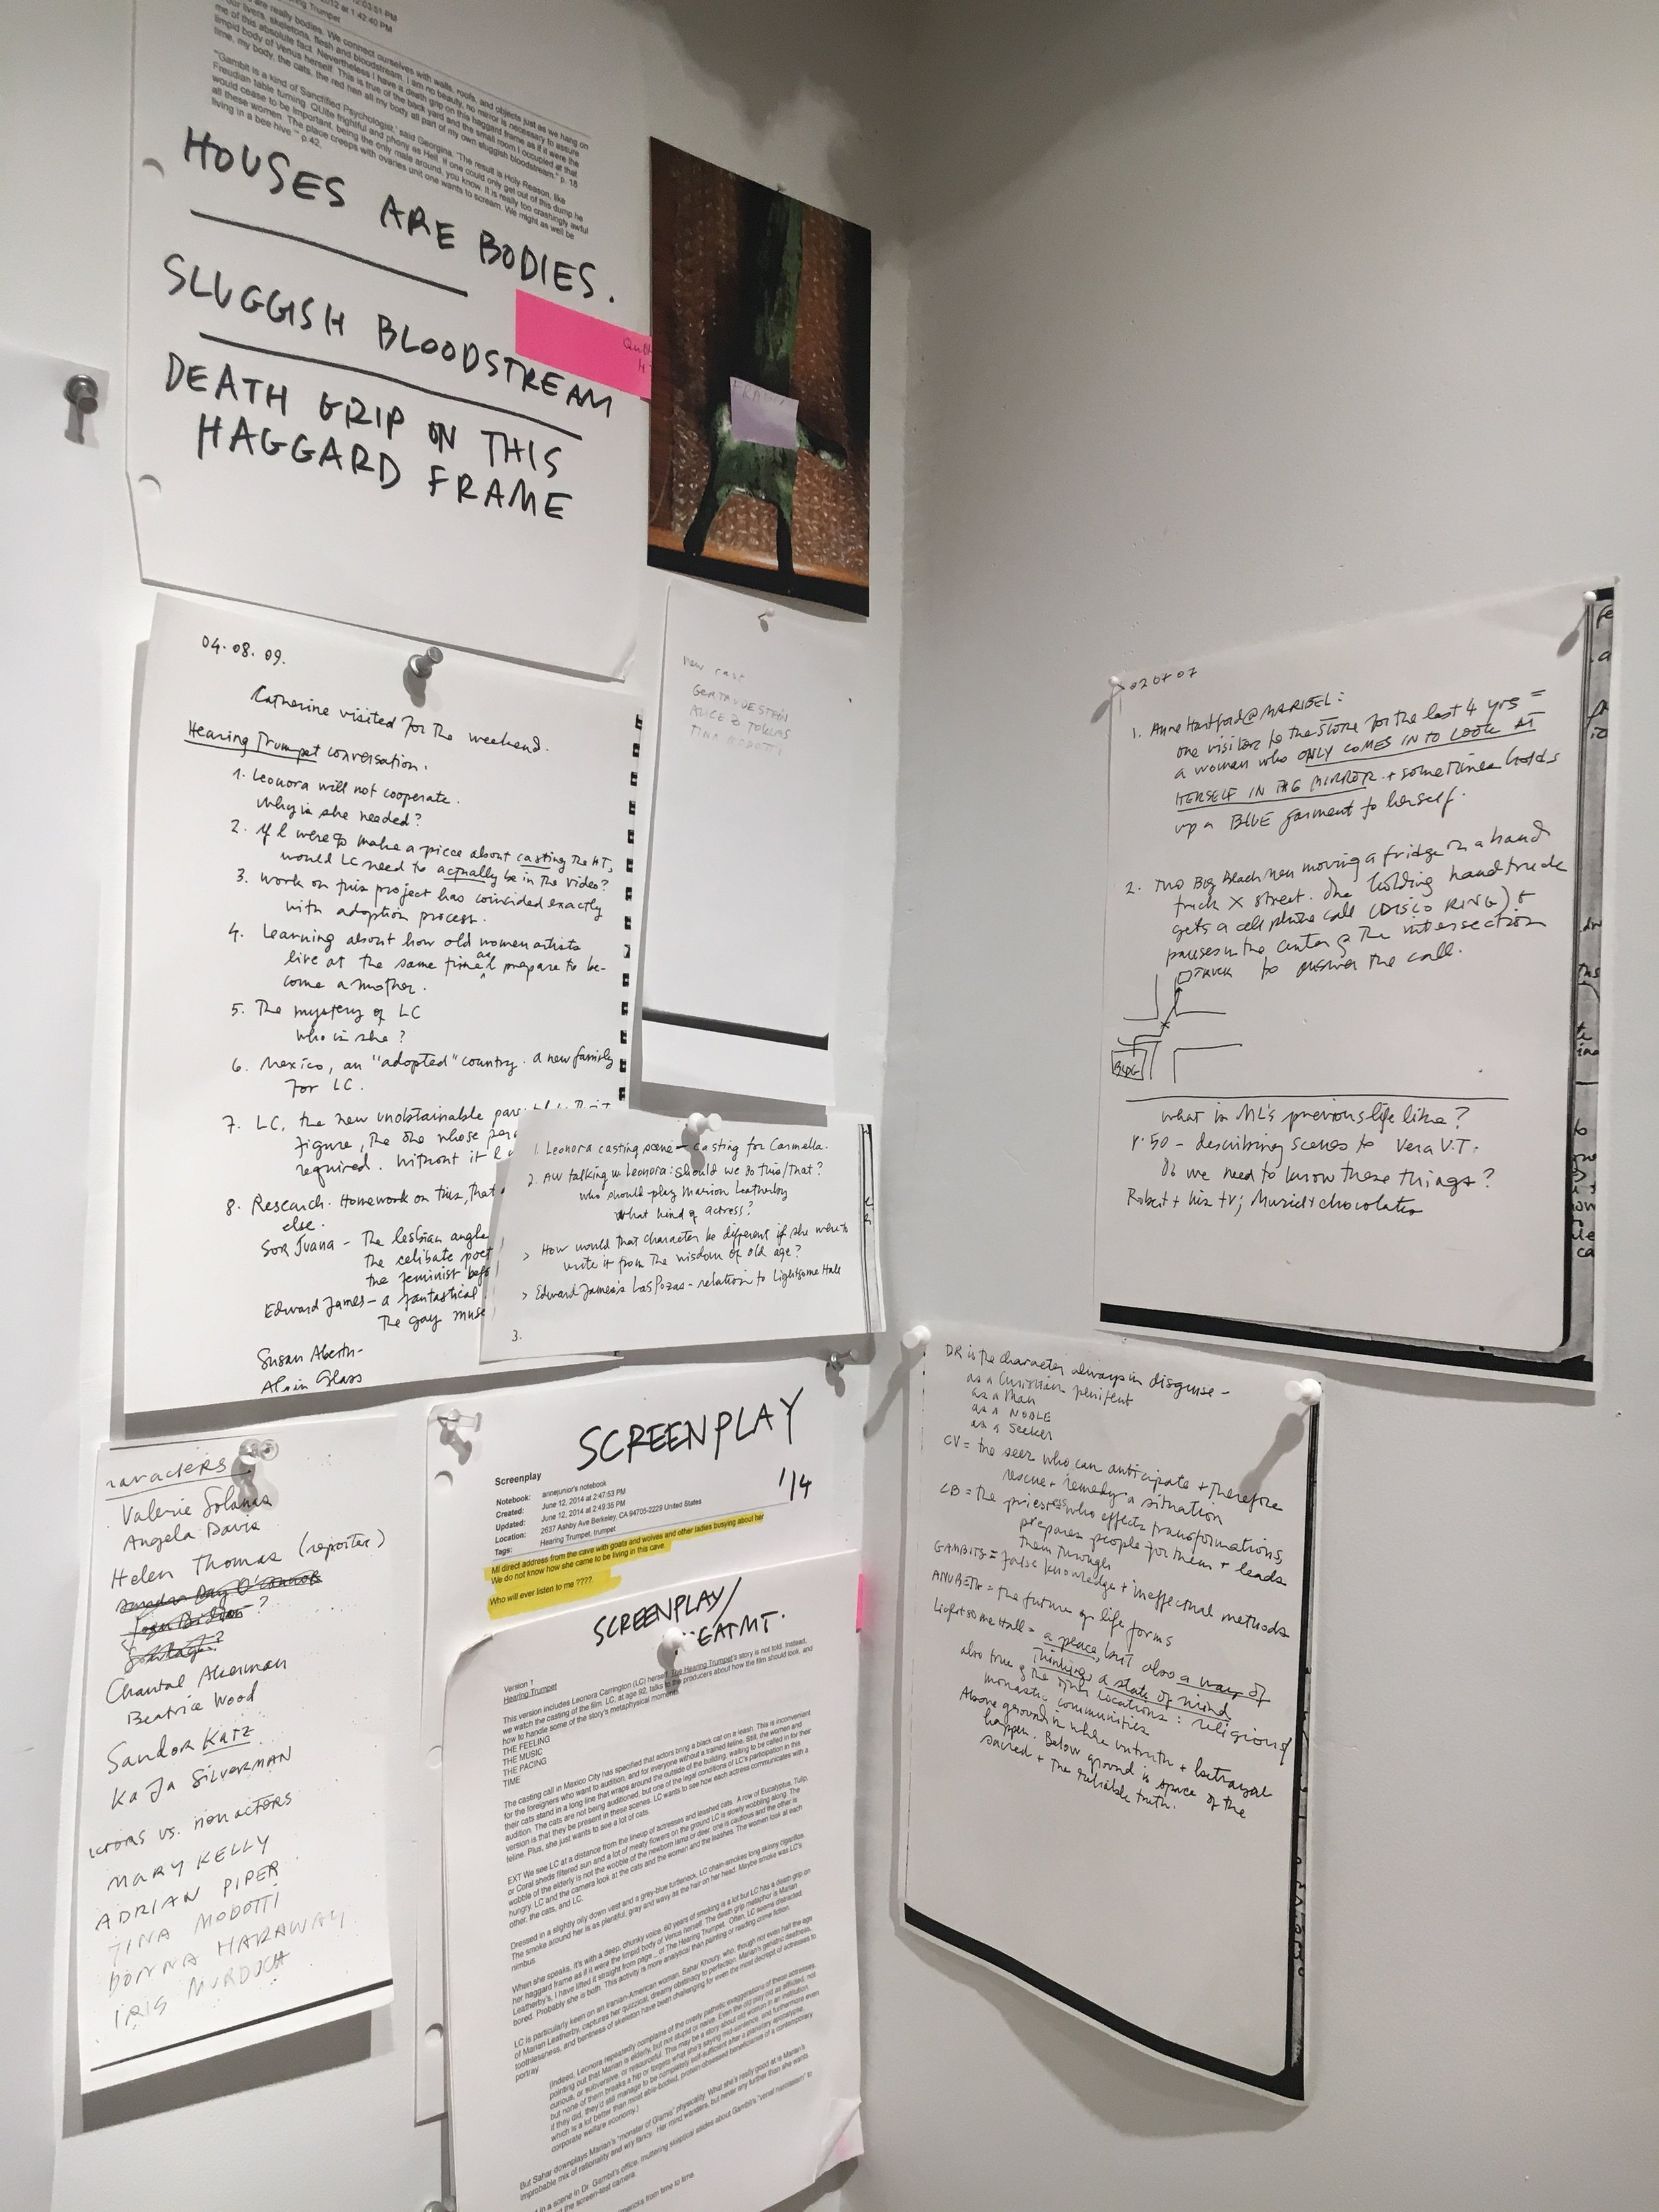 2012 at 1:42:40 PM
are really bodies. We connect ourselves with walls, roofs, and objects just as we hang on
our livers, skeletons, flesh and bloodstream. I am no beauty, no mirror is necessary to assure
me of this absolute fact. Nevertheless I have a death grip on this haggard frame as if it were the
limpid body of Venus herself. This is true of the back yard and the small room I occupied at that
time, my body, the cats, the red hen all my body all part of my own sluggish bloodstream." p. 18
"Gambit is a kind of Sanctified Psychologist," said Georgina. "The result is Holy Reason, like
Freudian table turning. QUite frightful and phony as Hell. If one could only get out of this dump he
would cease to be important, being the only male around, you know. It is really too crashingly awful
all these women. The place creeps with ovaries unit one wants to scream. We might as well be
living in a bee-hive." p.42.
HOUSES ARE BODIES.
SLUGGISH BLOODSTREAM
DEATH GRIP ON THIS
HAGGARD FRAME
04.08.09.
Catherine visited for the weekend.
Hearing Trumpet conversation.
1. Leonora will not cooperate.
Why is she needed?
2. If I were to make a piece about casting the HT,
would LC need to actually be in the video?
3. Work on this project has coincided exactly
with adoption process.
4. Learning about how old women artists
live at the same time as I prepare to be-
come a mother.
5. The mystery of LC
who is she?
6. Mexico, an "adopted" country. a new family
for LC.
7. LC, the new unobtainable
figure, the one whose
required. Without it I
8. Research. Homework on this, that
else.
Sor Juana - The lesbian angle
the celibate poet
the feminist
Edward James - a fantastical
The gay muse
Susan Aberth-
Alain Glass
new cast
GERTRUDE STEIN
ALICE B TOKLAS
TINA MODOTTI
1. Leonora casting scene - casting for Carmella.
2. AW talking w Leonora: should we do this/that?
who should play Marion Leatherby
what kind of actress?
> How would that character be different if she were to
write it from the wisdom of old age?
> Edward James's Las Pozas - relation to Lightsome Hall
3.
Valerie Solanas
Angela Davis
Helen Thomas (reporter)
Chantal Akerman
Beatrice Wood
Sandor Katz
KaJa SILVERMAN
vs. nonactors
MARY KELLY
ADRIAN PIPER
TINA MODOTTI
DONNA HARAWAY
IRIS MURDOCH
SCREENPLAY
1/4
Screenplay
Notebook: annejunior's notebook
Created: June 12, 2014 at 2:47:53 PM
Updated: June 12, 2014 at 2:49:35 PM
Location: 2637 Ashby Ave Berkeley, CA 94705-2229 United States
Tags: Hearing Trumpet, trumpet
Ml direct address from the cave with goats and wolves and other ladies busying about her
We do not know how she came to be living in this cave.
Who will ever listen to me ????.
SCREENPLAY/
EATMT.
Version 1
Hearing Trumpet
This version includes Leonora Carrington (LC) herself. The Hearing Trumpet's story is not told. Instead,
we watch the casting of the film. LC, at age 92, talks to the producers about how the film should look, and
how to handle some of the story's metaphysical moments
THE FEELING
THE MUSIC
THE PACING
TIME
The casting call in Mexico City has specified that actors bring a black cat on a leash. This is inconvenient
for the foreigners who want to audition, and for everyone without a trained feline. Still, the women and
their cats stand in a long line that wraps around the outside of the building, waiting to be called for their
audition. The cats are not being auditioned, but one of the legal conditions of LC's participation in this
version is that they be present in these scenes. LC wants to see how each actress communicates with a
feline. Plus, she just wants to see a lot of cats.
EXT We see LC at a distance from the lineup of actresses and leashed cats. A row of Eucalyptus, Tulip,
or Coral sheds filtered sun and a lot of meaty flowers on the ground LC is slowly wobbling along. The
wobble of the elderly is not the wobble of the newborn lama or deer: one is cautious and the other is
hungry. LC and the camera look at the cats and the women and the leashes. The women look at each
other, the cats, and LC.
Dressed in a slightly oily down vest and a grey-blue turtleneck, LC chain-smokes long skinny cigarillos.
The smoke around her is as plentiful, gray and wavy as the hair on her head. Maybe smoke was LC's
nimbus.
When she speaks, it's with a deep, chunky voice. 60 years of smoking is a lot but LC has a death grip on
her haggard frame as if it were the limpid body of Venus herself. The death grip metaphor is Marian
Leatherby's, I have lifted it straight from page .. of The Hearing Trumpet. Often, LC seems distracted,
bored. Probably she is both. This activity is more analytical than painting or reading crime fiction.
LC is particularly keen on an Iranian-American woman, Sahar Khoury, who, though not even half the age
of Marian Leatherby, captures her quizzical, dreamy obstinacy to perfection. Marian's geriatric deafness,
toothlessness, and bentness of skeleton have been challenging for even the most decrepit of actresses to
portray.
(Indeed, Leonora repeatedly complains of the overly pathetic exaggerations of these actresses,
pointing out that Marian is elderly, but not stupid or naive. Even the old play old as afflicted, not
curious, or subversive, or resourceful. This may be a story about old women in an institution,
but none of them breaks a hip or forgets what she's saying mid-sentence, and furthermore even
if they did, they'd still manage to be completely self-sufficient after a planetary apocalypse,
which is a lot better than most able-bodied, protein-obsessed beneficiaries of a contemporary
corporate welfare economy.)
But Sahar downplays Marian's "monster of Glamis" physicality. What she's really good at is Marian's
improbable mix of rationality and wry fancy. Her mind wanders, but never any further than she wants
in a scene in Dr. Gambit's office, muttering skeptical asides about Gambit's "venal narcissism" to
the screen-test camera.
limericks from time to time
1. Anne Hartford @ MARIBEL:
one visitor to the store for the last 4 yrs =
a woman who ONLY COMES IN TO LOOK AT
HERSELF IN THE MIRROR + sometimes holds
up a BLUE garment to herself.
2. Two Big Black men moving a fridge on a hand
truck X street. One holding handtruck
gets a cell phone call (DISCO RING) +
pauses in the center of the intersection
to answer the call.
TRUCK
BLDG
what is ML's previous life like?
p.50 - describing scenes to Vera V.T.
Do we need to know these things?
Robert + his tv; Muriel + chocolates
DR is the character always in disguise -
as a Christian penitent
as a Man
as a NOBLE
as a Seeker
CV = the seer who can anticipate + therefore
rescue + remedy a situation
CB = the priestess who effects transformations,
prepares people for them + leads
them through
GAMBITS = false knowledge + ineffectual methods
ANUBETH = the future of life forms
Lightsome Hall = a peace, but also a way of
thinking, a state of mind
also true of the other locations: religions/
monastic communities
Above ground is where untruth + betrayal
happen. Below ground is space of the
sacred + the reliable truth.